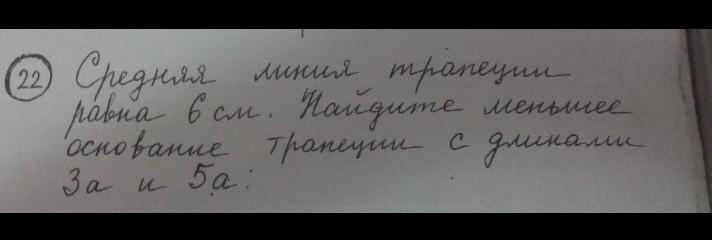 22 Средняя линия трапеции
равна 6 см. Найдите меньшее
основание трапеции с длинами
3а и 5а: